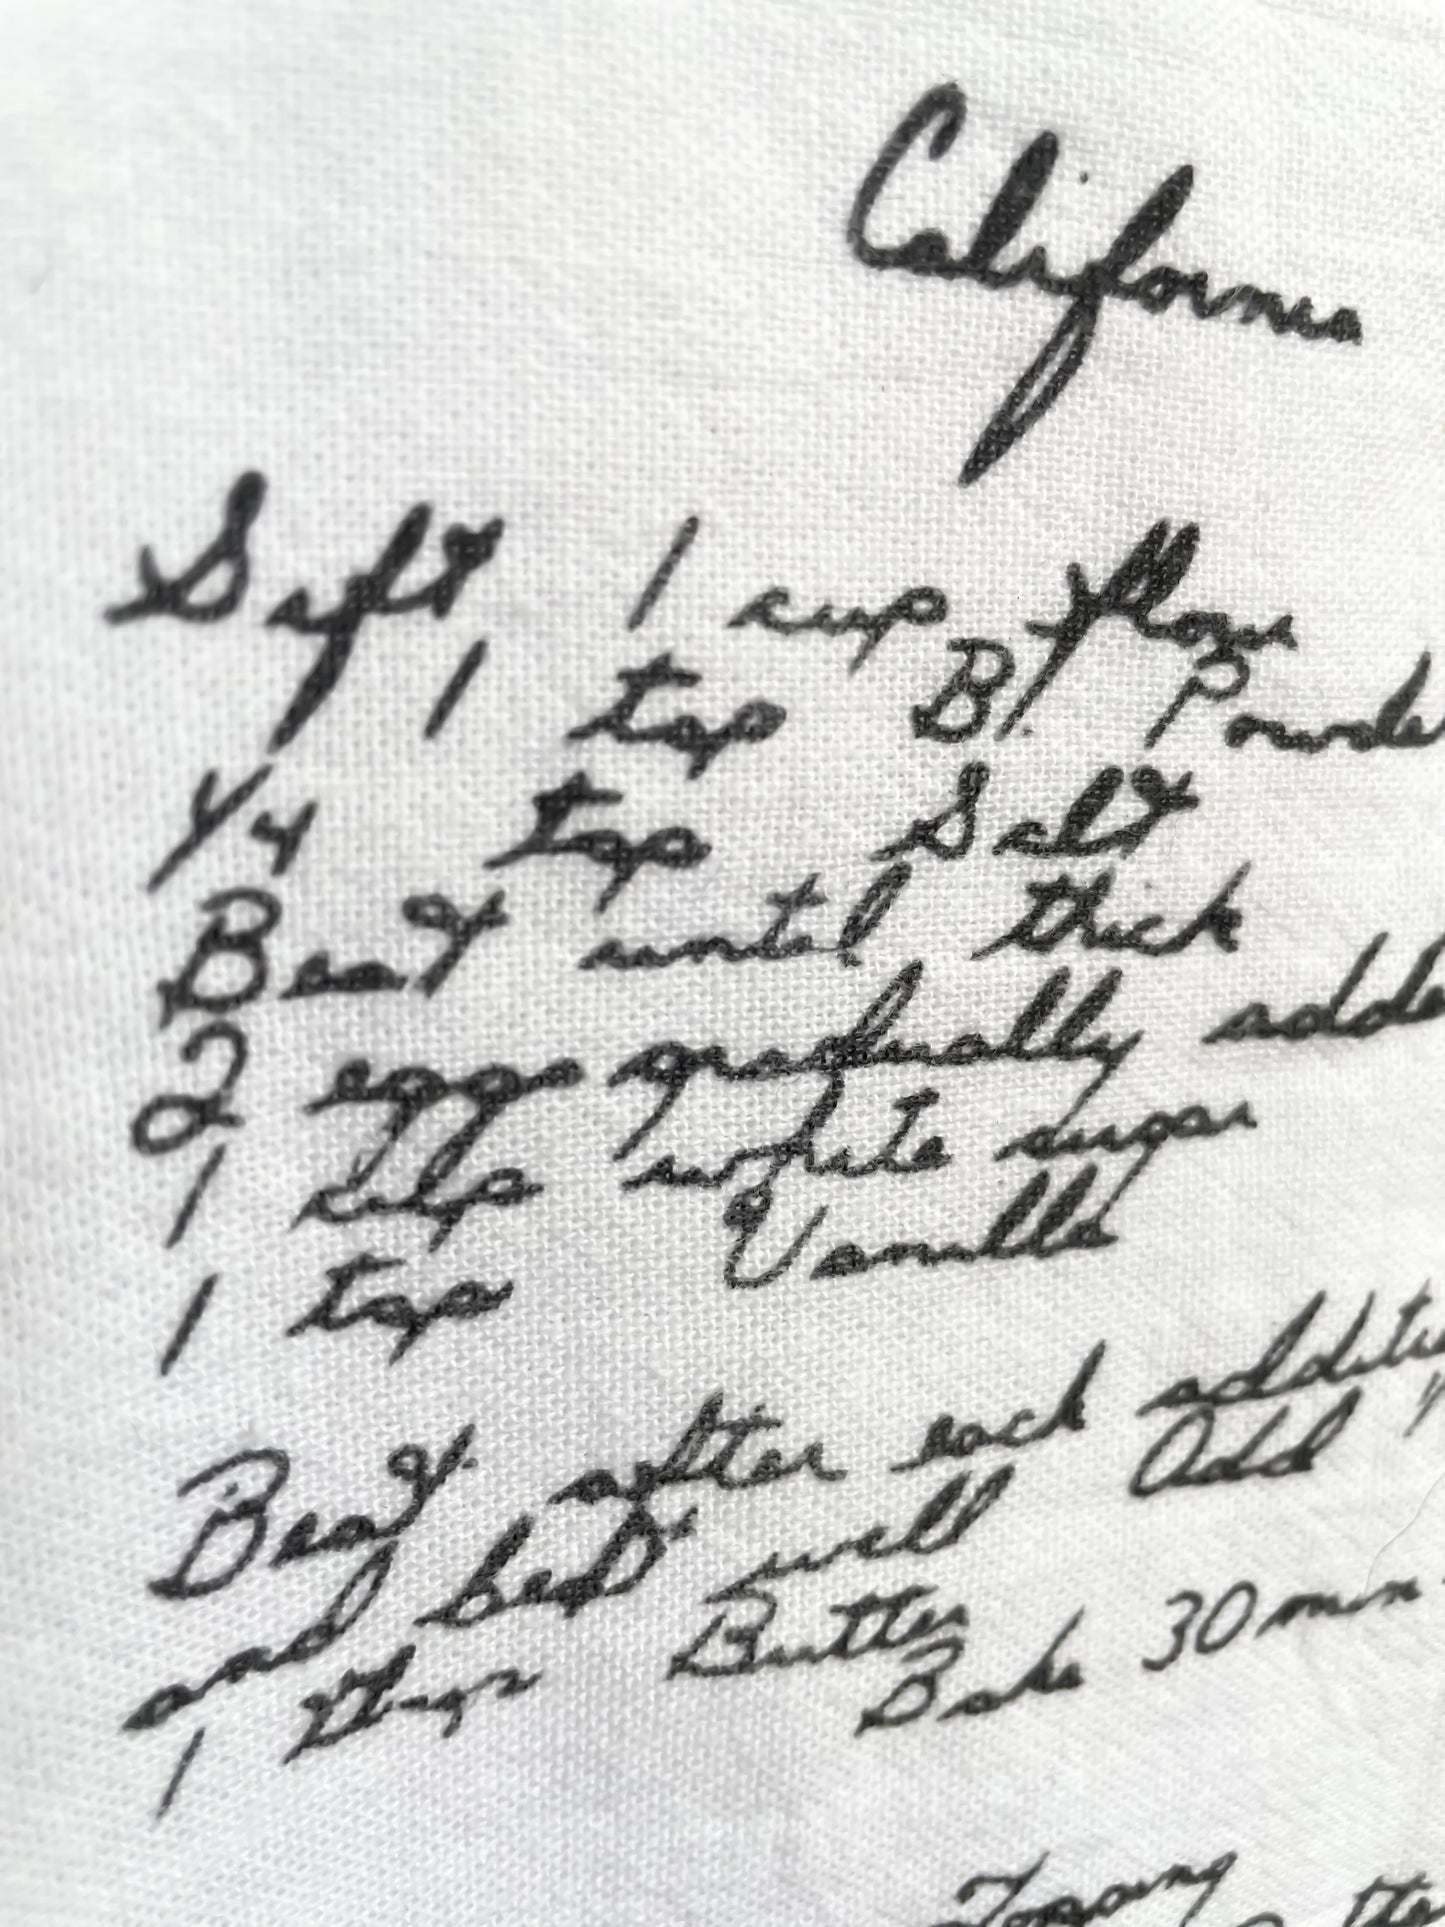 California
Saft 1 cup flour
1 tsp B. Powde
1/4 tsp Salt
Beat until thick
2 eggs gradually adde
1 cup white sugar
1 tsp Vanilla
Beat after each additi
and beat well Add
1 tbsp Butter
Bake 30 min
Topping